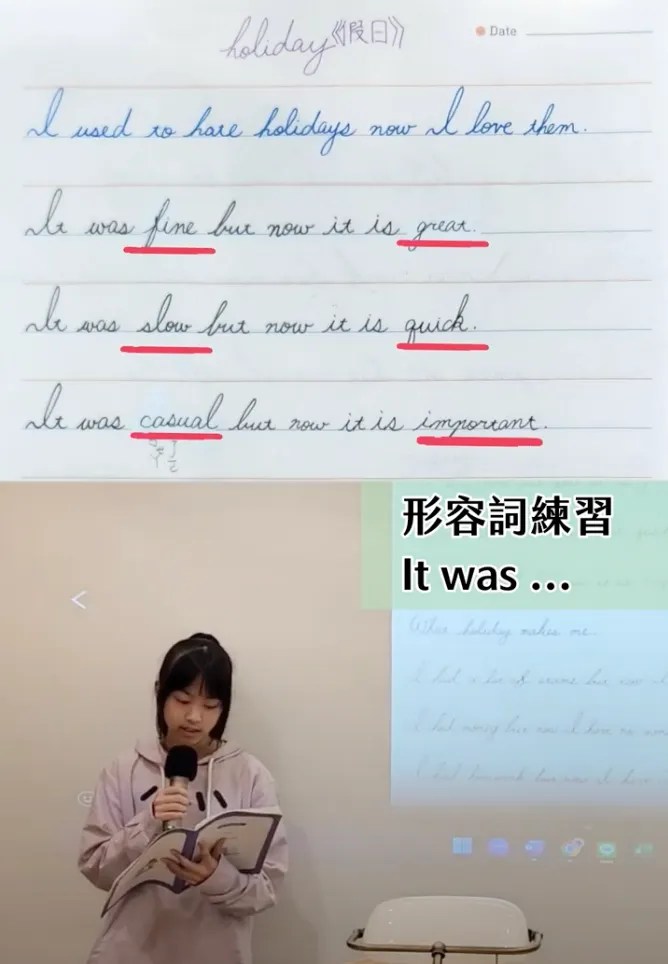 holiday《假日》
Date
I used to hate holidays now I love them.
It was fine but now it is great.
It was slow but now it is quick.
It was casual but now it is important.
形容詞練習
It was ...
What holiday makes me
I had a lot of but now I
I had money but now I have no
I had homework but now I have